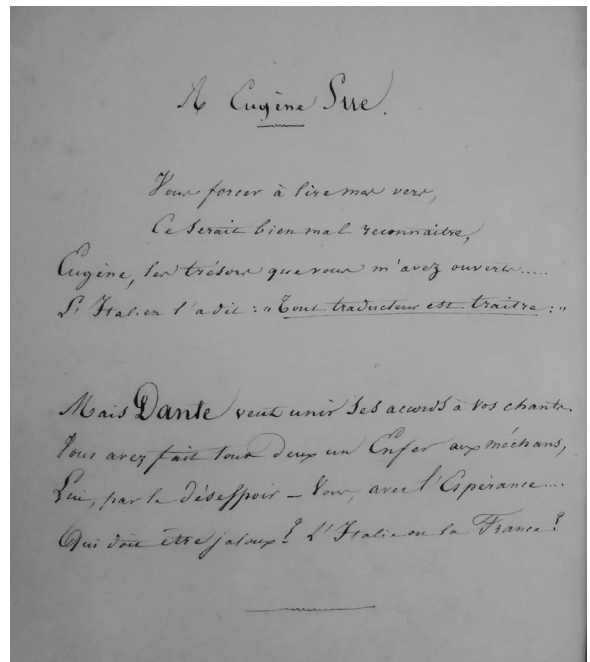 A Eugène Sue.
Vous forcer à lire mes vers,
Ce serait bien mal reconnaitre,
Eugène, les trésors que vous m'avez ouverts.....
L'Italien l'a dit : "Tout traducteur est traitre :"
Mais Dante veut unir ses accords à vos chants.
Vous avez fait tous deux un Enfer aux méchans,
Lui, par le désespoir – Vous, avec l'Espérance....
Qui doit être jaloux ? L'Italie ou la France ?